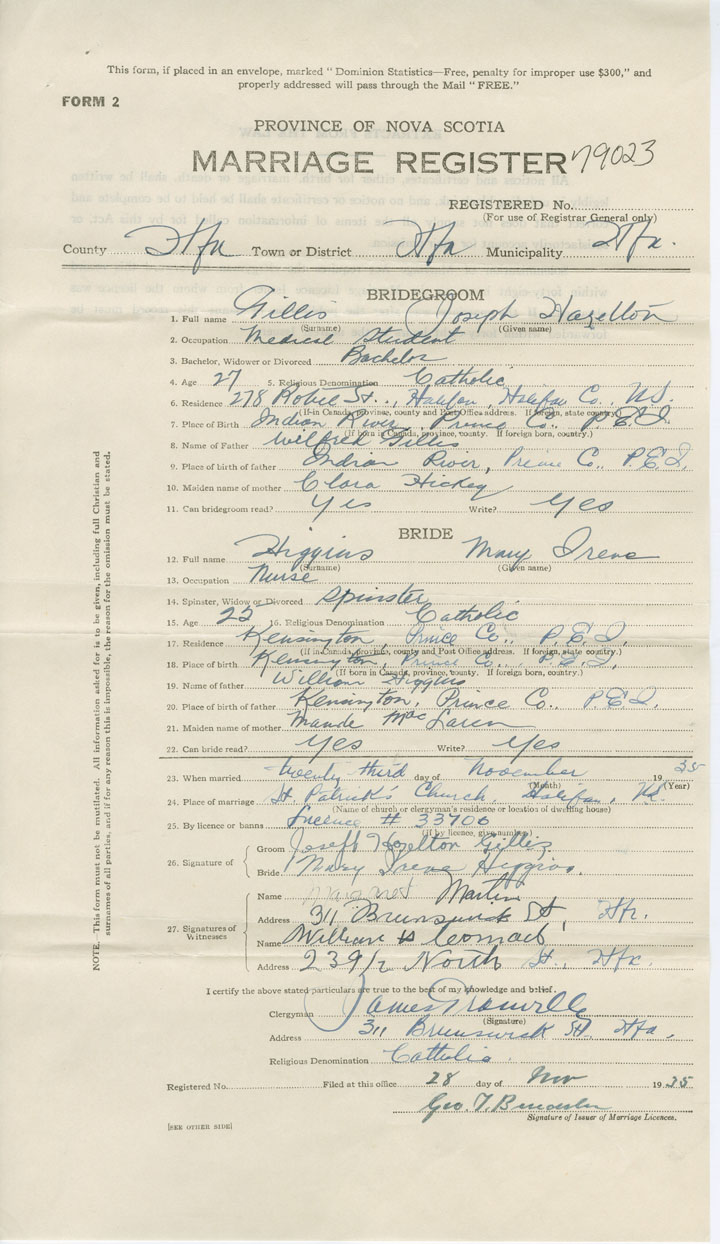 This form, if placed in an envelope, marked "Dominion Statistics—Free, penalty for improper use $300," and
properly addressed will pass through the Mail "FREE."
FORM 2
PROVINCE OF NOVA SCOTIA
MARRIAGE REGISTER 79023
REGISTERED No.
(For use of Registrar General only)
County Hfx Town or District Hfx Municipality Hfx.
BRIDEGROOM
1. Full name Gillis Joseph Hazelton
(Surname) (Given name)
2. Occupation Medical Student
3. Bachelor, Widower or Divorced Bachelor
4. Age 27 5. Religious Denomination Catholic
6. Residence 278 Robie St., Halifax, Halifax Co., N.S.
(If in Canada, province, county and Post Office address. If foreign, state country.)
7. Place of Birth Indian River, Prince Co., P.E.I.
(If born in Canada, province, county. If foreign born, country.)
8. Name of Father Wilfred Gillis
9. Place of birth of father Indian River, Prince Co., P.E.I.
10. Maiden name of mother Clara Hickey
11. Can bridegroom read? Yes Write? Yes
BRIDE
12. Full name Higgins Mary Irene
(Surname) (Given name)
13. Occupation Nurse
14. Spinster, Widow or Divorced Spinster
15. Age 22 16. Religious Denomination Catholic
17. Residence Kensington, Prince Co., P.E.I.
(If in Canada, province, county and Post Office address. If foreign, state country.)
18. Place of birth Kensington, Prince Co., P.E.I.
(If born in Canada, province, county. If foreign born, country.)
19. Name of father William Higgins
20. Place of birth of father Kensington, Prince Co., P.E.I.
21. Maiden name of mother Maude MacLaren
22. Can bride read? Yes Write? Yes
23. When married twenty third day of November 1935
(Month) (Year)
24. Place of marriage St Patrick's Church, Halifax, N.S.
(Name of church or clergyman's residence or location of dwelling house)
25. By licence or banns Licence # 33706
(If by licence, give number)
26. Signature of
Groom Joseph Hazelton Gillis
Bride Mary Irene Higgins
27. Signatures of Witnesses
Name Margaret Martin
Address 311 Brunswick St, Hfx.
Name William
Address 239 1/2 North St., Hfx
I certify the above stated particulars are true to the best of my knowledge and belief.
Clergyman James
(Signature)
Address 311 Brunswick St. Hfx.
Religious Denomination Catholic
Registered No. Filed at this office 28 day of Nov 1935
Geo. T.
Signature of Issuer of Marriage Licences.
[SEE OTHER SIDE]
NOTE.—This form must not be mutilated. All information asked for is to be given, including full Christian and
surnames of all parties, and if for any reason this is impossible, the reason for the omission must be stated.